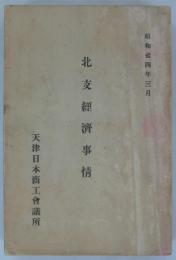 昭和拾四年三月
北支經濟事情
天津日本商工會議所